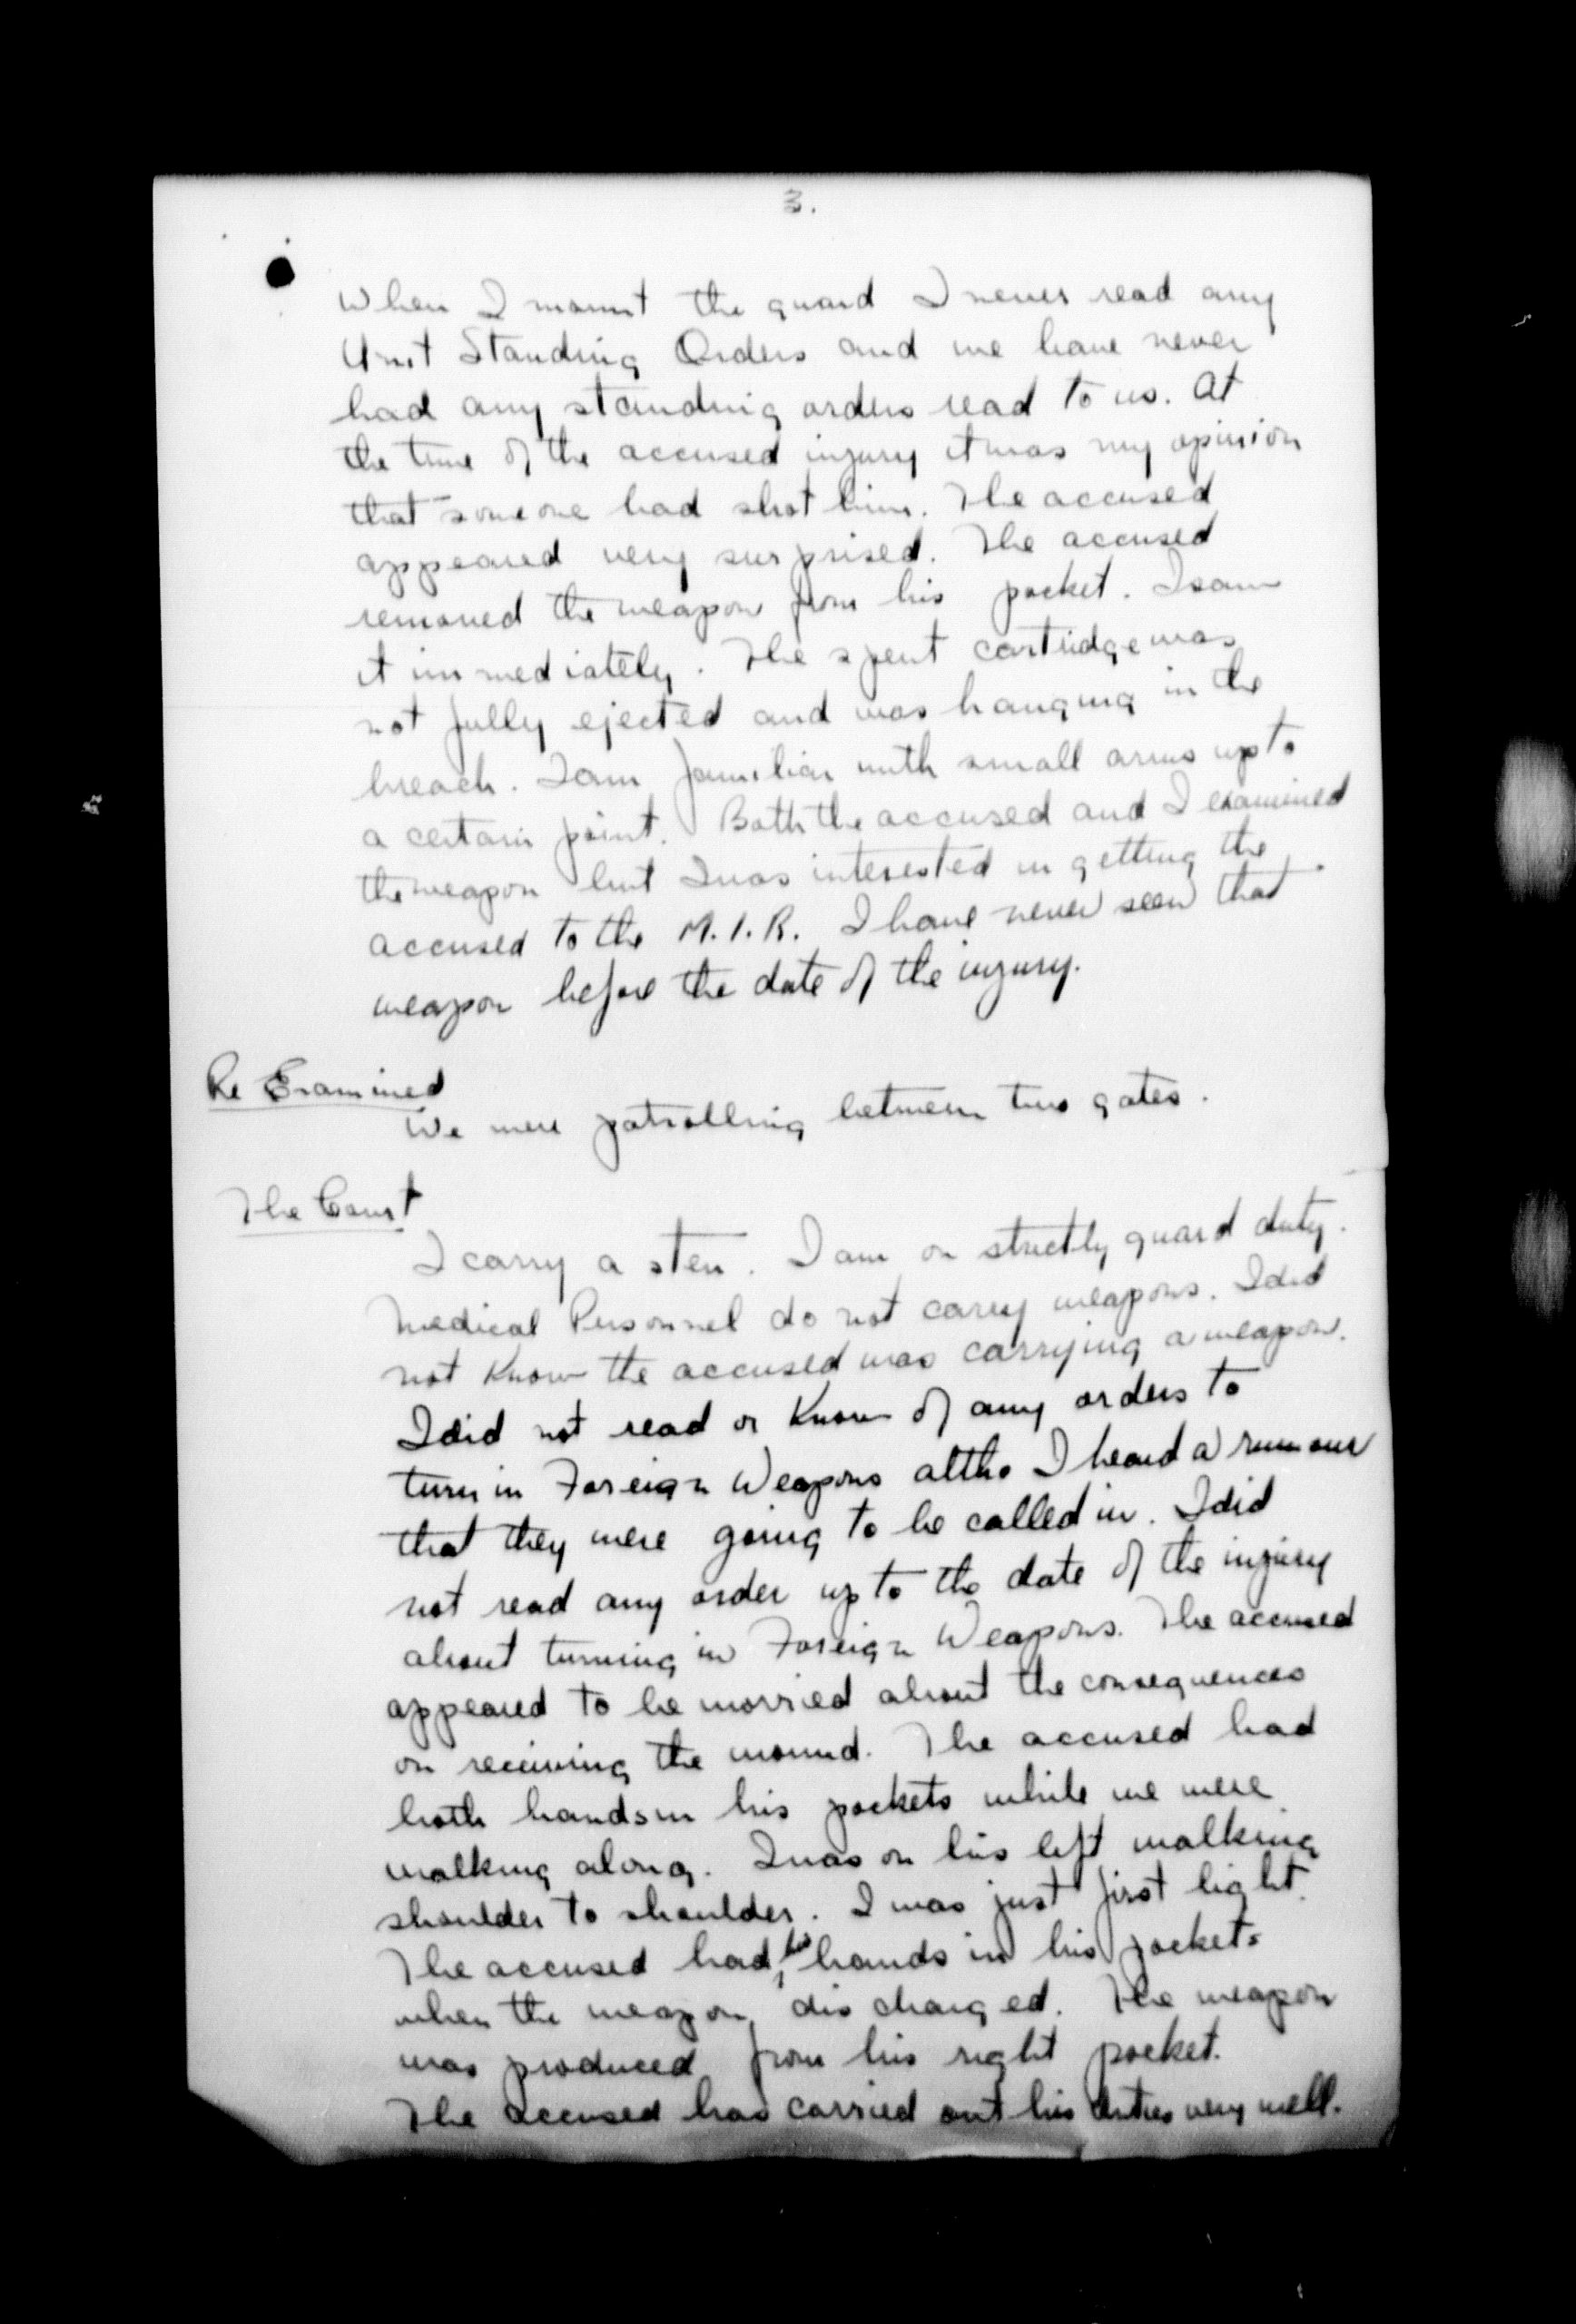 3.
When I mount the guard I never read any
Unit Standing Orders and we have never
had any standing orders read to us. At
the time of the accused injury it was my opinion
that someone had shot him. The accused
appeared very surprised. The accused
removed the weapon from his pocket. I saw
it immediately. The spent cartridge was
not fully ejected and was hanging in the
breach. I am familiar with small arms up to
a certain point. Both the accused and I examined
the weapon but I was interested in getting the
accused to the M.I.R. I have never seen that
weapon before the date of the injury.
Re Examined
We were patrolling between two gates.
The Court
I carry a sten. I am on strictly guard duty.
Medical Personnel do not carry weapons. I did
not know the accused was carrying a weapon.
I did not read or know of any orders to
turn in Foreign Weapons altho I heard a rumour
that they were going to be called in. I did
not read any order up to the date of the injury
about turning in Foreign Weapons. The accused
appeared to be worried about the consequences
on receiving the wound. The accused had
both hands in his pockets while we were
walking along. I was on his left walking
shoulder to shoulder. I was just first light.
The accused had his hands in his pockets
when the weapon discharged. The weapon
was produced from his right pocket.
The accused has carried out his duties very well.